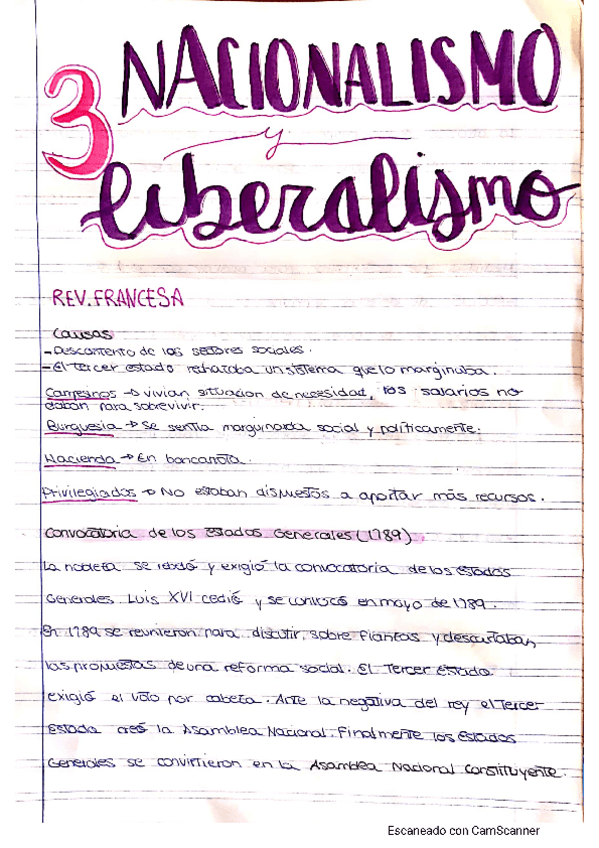 3 NACIONALISMO
y
liberalismo
REV. FRANCESA
Causas
- Descontento de los sectores sociales.
- El tercer estado rechazaba un sistema que lo marginaba.
Campesinos → vivian situacion de necesidad, los salarios no
daban para sobrevivir.
Burguesia → Se sentia marginada social y políticamente.
Hacienda → En bancarota.
Privilegiados → No estaban dispuestos a aportar más recursos.
Convocatoria de los estados Generales (1789)
La nobleza se rebeló y exigió la convocatoria de los estados
Generales. Luis XVI cedió y se convocó en mayo de 1789.
En 1789 se reunieron para discutir, sobre y descartaban
las propuestas de una reforma social. El Tercer Estado
exigió el voto por cabeza. Ante la negativa del rey el Tercer
estado creó la Asamblea Nacional. Finalmente los estados
Generales se convirtieron en la Asamblea Nacional Constituyente.
Escaneado con CamScanner